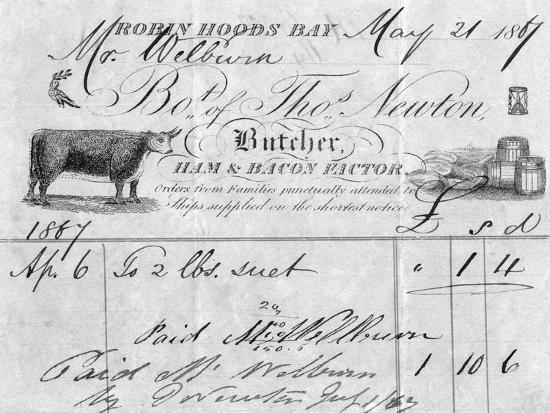 ROBIN HOODS BAY May 21 1867
Mr. Welburn
Bot. of Thos. Newton,
Butcher,
HAM & BACON FACTOR.
Orders from Families punctually attended to
Ships supplied on the shortest notice.
£ s d
1867
Ap. 6 To 2 lbs. suet " 1 4
20/
Paid Welburn
Paid Mr Welburn 1 10 6
by